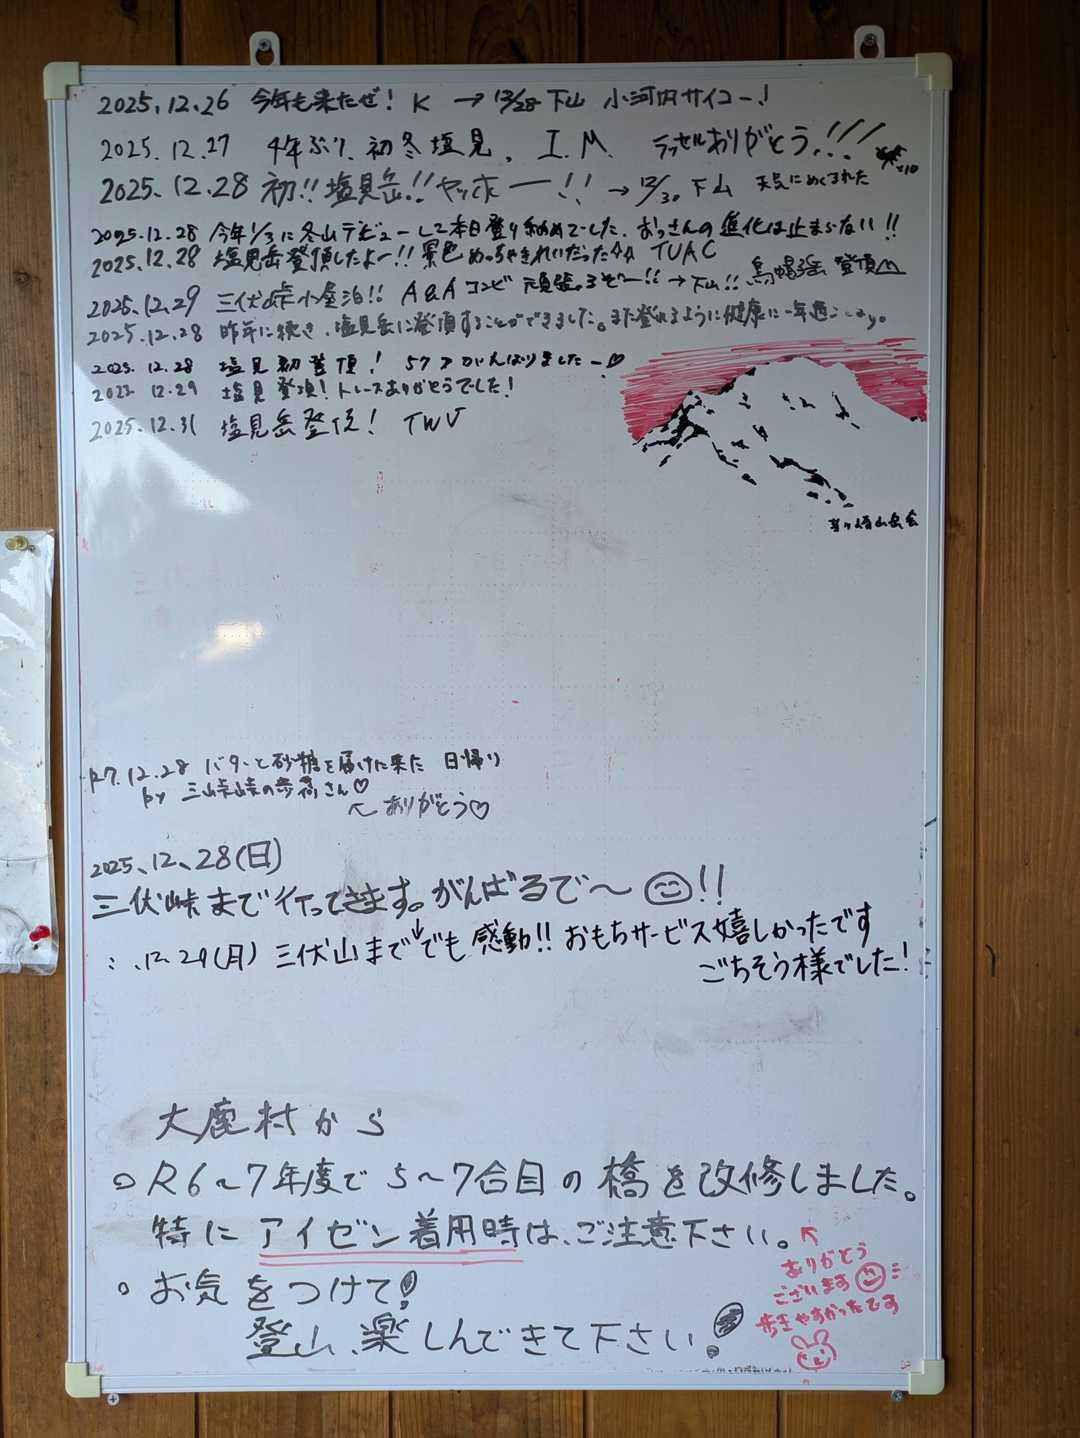 2025.12.26 今年も来たぜ！ K → 12/28 下山 小河内サイコー！
2025.12.27 4年ぶり、初冬塩見。 I.M. ラッセルありがとう！！！ ×10
2025.12.28 初！！塩見岳！！ヤッホー！！ → 12/30 下山 天気にめぐまれた
2025.12.28 今年1/3に冬山デビューして本日登り納めでした。おっさんの進化は止まらない！！
2025.12.28 塩見岳登頂したよー！！景色めっちゃきれいだった TUAC
2025.12.29 三伏峠小屋泊！！ A&Aコンビ 頑張るぞー！！ → 下山！！ 烏帽子岳 登頂
2025.12.28 昨年に続き、塩見岳に登頂することができました。また登れるように健康に一年過
2025.12.28 塩見初登頂！ 57才がんばりましたー♡
12.29 塩見登頂！トレースありがとうでした！
2025.12.31 塩見岳登頂！ TWV
茅ヶ崎山岳会
R7.12.28 バターと砂糖を届けに来た 日帰り
by 三伏峠の さん♡
ありがとう♡
2025.12.28(日)
三伏峠まで行ってきます。がんばるで〜！！
12.29(月) 三伏山まで↓でも感動！！おもちサービス嬉しかったです
ごちそう様でした！
大鹿村から
○R6〜7年度で5〜7合目の橋を改修しました。
特にアイゼン着用時は、ご注意下さい。
○お気をつけて！
登山、楽しんできて下さい！
ありがとう
ございます
歩きやすかったです